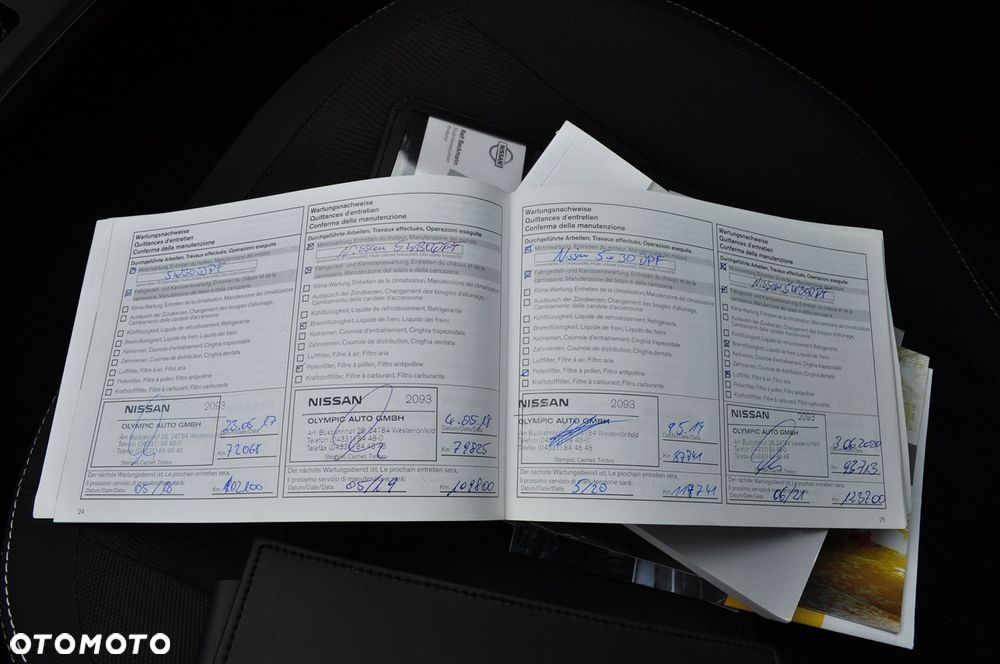 NISSAN
Ralf Beckmann
Wartungsnachweise
Quittances d'entretien
Conferma della manutenzione
Durchgeführte Arbeiten, Travaux effectués, Operazioni eseguite
Motorwartung, Entretien du moteur, Manutenzione del motore
5W30 DPF
Fahrgestell- und Karosseriewartung, Entretien du châssis et de la
carrosserie, Manutenzione del telaio e della carrozzeria
Klima-Wartung, Entretien de la climatisation, Manutenzione del climatizzatore
Austausch der Zündkerzen, Changement des bougies d'allumage,
Cambiamento delle candele d'accensione
Kühlflüssigkeit, Liquide de refroidissement, Refrigerante
Bremsflüssigkeit, Liquide de frein, Liquido dei freini
Keilriemen, Courroie d'entraînement, Cinghia trapezoidale
Zahnriemen, Courroie de distribution, Cinghia dentata
Luftfilter, Filtre à air, Filtro aria
Pollenfilter, Filtre à pollen, Filtro antipolline
Kraftstofffilter, Filtre à carburant, Filtro carburante
NISSAN 2093
OLYMPIC AUTO GMBH
Am Busbahnhof 28, 24784 Westerrönfeld
Telefon (04331) 84 48-0
Telefax (04331) 84 48 48
Stempel, Cachet, Timbro
23.05.17
Datum/Date/Data
Km: 72068
Der nächste Wartungsdienst ist, Le prochain entretien sera,
Il prossimo servizio di manutenzione sarà:
Datum/Date/Data: 05/18 Km: 102100
24
Wartungsnachweise
Quittances d'entretien
Conferma della manutenzione
Durchgeführte Arbeiten, Travaux effectués, Operazioni eseguite
Motorwartung, Entretien du moteur, Manutenzione del motore
Nissan 5W30 DPF
Fahrgestell- und Karosseriewartung, Entretien du châssis et de la
carrosserie, Manutenzione del telaio e della carrozzeria
Klima-Wartung, Entretien de la climatisation, Manutenzione del climatizzatore
Austausch der Zündkerzen, Changement des bougies d'allumage,
Cambiamento delle candele d'accensione
Kühlflüssigkeit, Liquide de refroidissement, Refrigerante
Bremsflüssigkeit, Liquide de frein, Liquido dei freini
Keilriemen, Courroie d'entraînement, Cinghia trapezoidale
Zahnriemen, Courroie de distribution, Cinghia dentata
Luftfilter, Filtre à air, Filtro aria
Pollenfilter, Filtre à pollen, Filtro antipolline
Kraftstofffilter, Filtre à carburant, Filtro carburante
NISSAN 2093
OLYMPIC AUTO GMBH
Am Busbahnhof 28, 24784 Westerrönfeld
Telefon (04331) 84 48-0
Telefax (04331) 84 48 48
Stempel, Cachet, Timbro
4.05.18
Datum/Date/Data
Km: 79825
Der nächste Wartungsdienst ist, Le prochain entretien sera,
Il prossimo servizio di manutenzione sarà:
Datum/Date/Data: 05/19 Km: 109800
Wartungsnachweise
Quittances d'entretien
Conferma della manutenzione
Durchgeführte Arbeiten, Travaux effectués, Operazioni eseguite
Motorwartung, Entretien du moteur, Manutenzione del motore
Nissan 5W30 DPF
Fahrgestell- und Karosseriewartung, Entretien du châssis et de la
carrosserie, Manutenzione del telaio e della carrozzeria
Klima-Wartung, Entretien de la climatisation, Manutenzione del climatizzatore
Austausch der Zündkerzen, Changement des bougies d'allumage,
Cambiamento delle candele d'accensione
Kühlflüssigkeit, Liquide de refroidissement, Refrigerante
Bremsflüssigkeit, Liquide de frein, Liquido dei freini
Keilriemen, Courroie d'entraînement, Cinghia trapezoidale
Zahnriemen, Courroie de distribution, Cinghia dentata
Luftfilter, Filtre à air, Filtro aria
Pollenfilter, Filtre à pollen, Filtro antipolline
Kraftstofffilter, Filtre à carburant, Filtro carburante
NISSAN 2093
OLYMPIC AUTO GMBH
Am Busbahnhof 84 Westerrönfeld
Telefon (04331) 84 48-0
Telefax (04331) 84 48 48
Stempel, Cachet, Timbro
9.5.19
Datum/Date/Data
Km: 87741
Der nächste Wartungsdienst ist, Le prochain entretien sera,
Il prossimo servizio di manutenzione sarà:
Datum/Date/Data: 5/20 Km: 117741
Wartungsnachweise
Quittances d'entretien
Conferma della manutenzione
Durchgeführte Arbeiten, Travaux effectués, Operazioni eseguite
Motorwartung, Entretien du moteur, Manutenzione del motore
Nissan 5W30 DPF
Fahrgestell- und Karosseriewartung, Entretien du châssis et de la
carrosserie, Manutenzione del telaio e della carrozzeria
Klima-Wartung, Entretien de la climatisation, Manutenzione del climatizzatore
Austausch der Zündkerzen, Changement des bougies d'allumage,
Cambiamento delle candele d'accensione
Kühlflüssigkeit, Liquide de refroidissement, Refrigerante
Bremsflüssigkeit, Liquide de frein, Liquido dei freini
Keilriemen, Courroie d'entraînement, Cinghia trapezoidale
Zahnriemen, Courroie de distribution, Cinghia dentata
Luftfilter, Filtre à air, Filtro aria
Pollenfilter, Filtre à pollen, Filtro antipolline
Kraftstofffilter, Filtre à carburant, Filtro carburante
NISSAN 2093
OLYMPIC AUTO GMBH
Am Busbahnhof 28, 24784 Westerrönfeld
Telefon (04331) 84 48-0
Telefax (04331) 84 48 48
Stempel, Cachet, Timbro
3.06.2020
Datum/Date/Data
Km: 93713
Der nächste Wartungsdienst ist, Le prochain entretien sera,
Il prossimo servizio di manutenzione sarà:
Datum/Date/Data: 06/21 Km: 123700
25
OTOMOTO